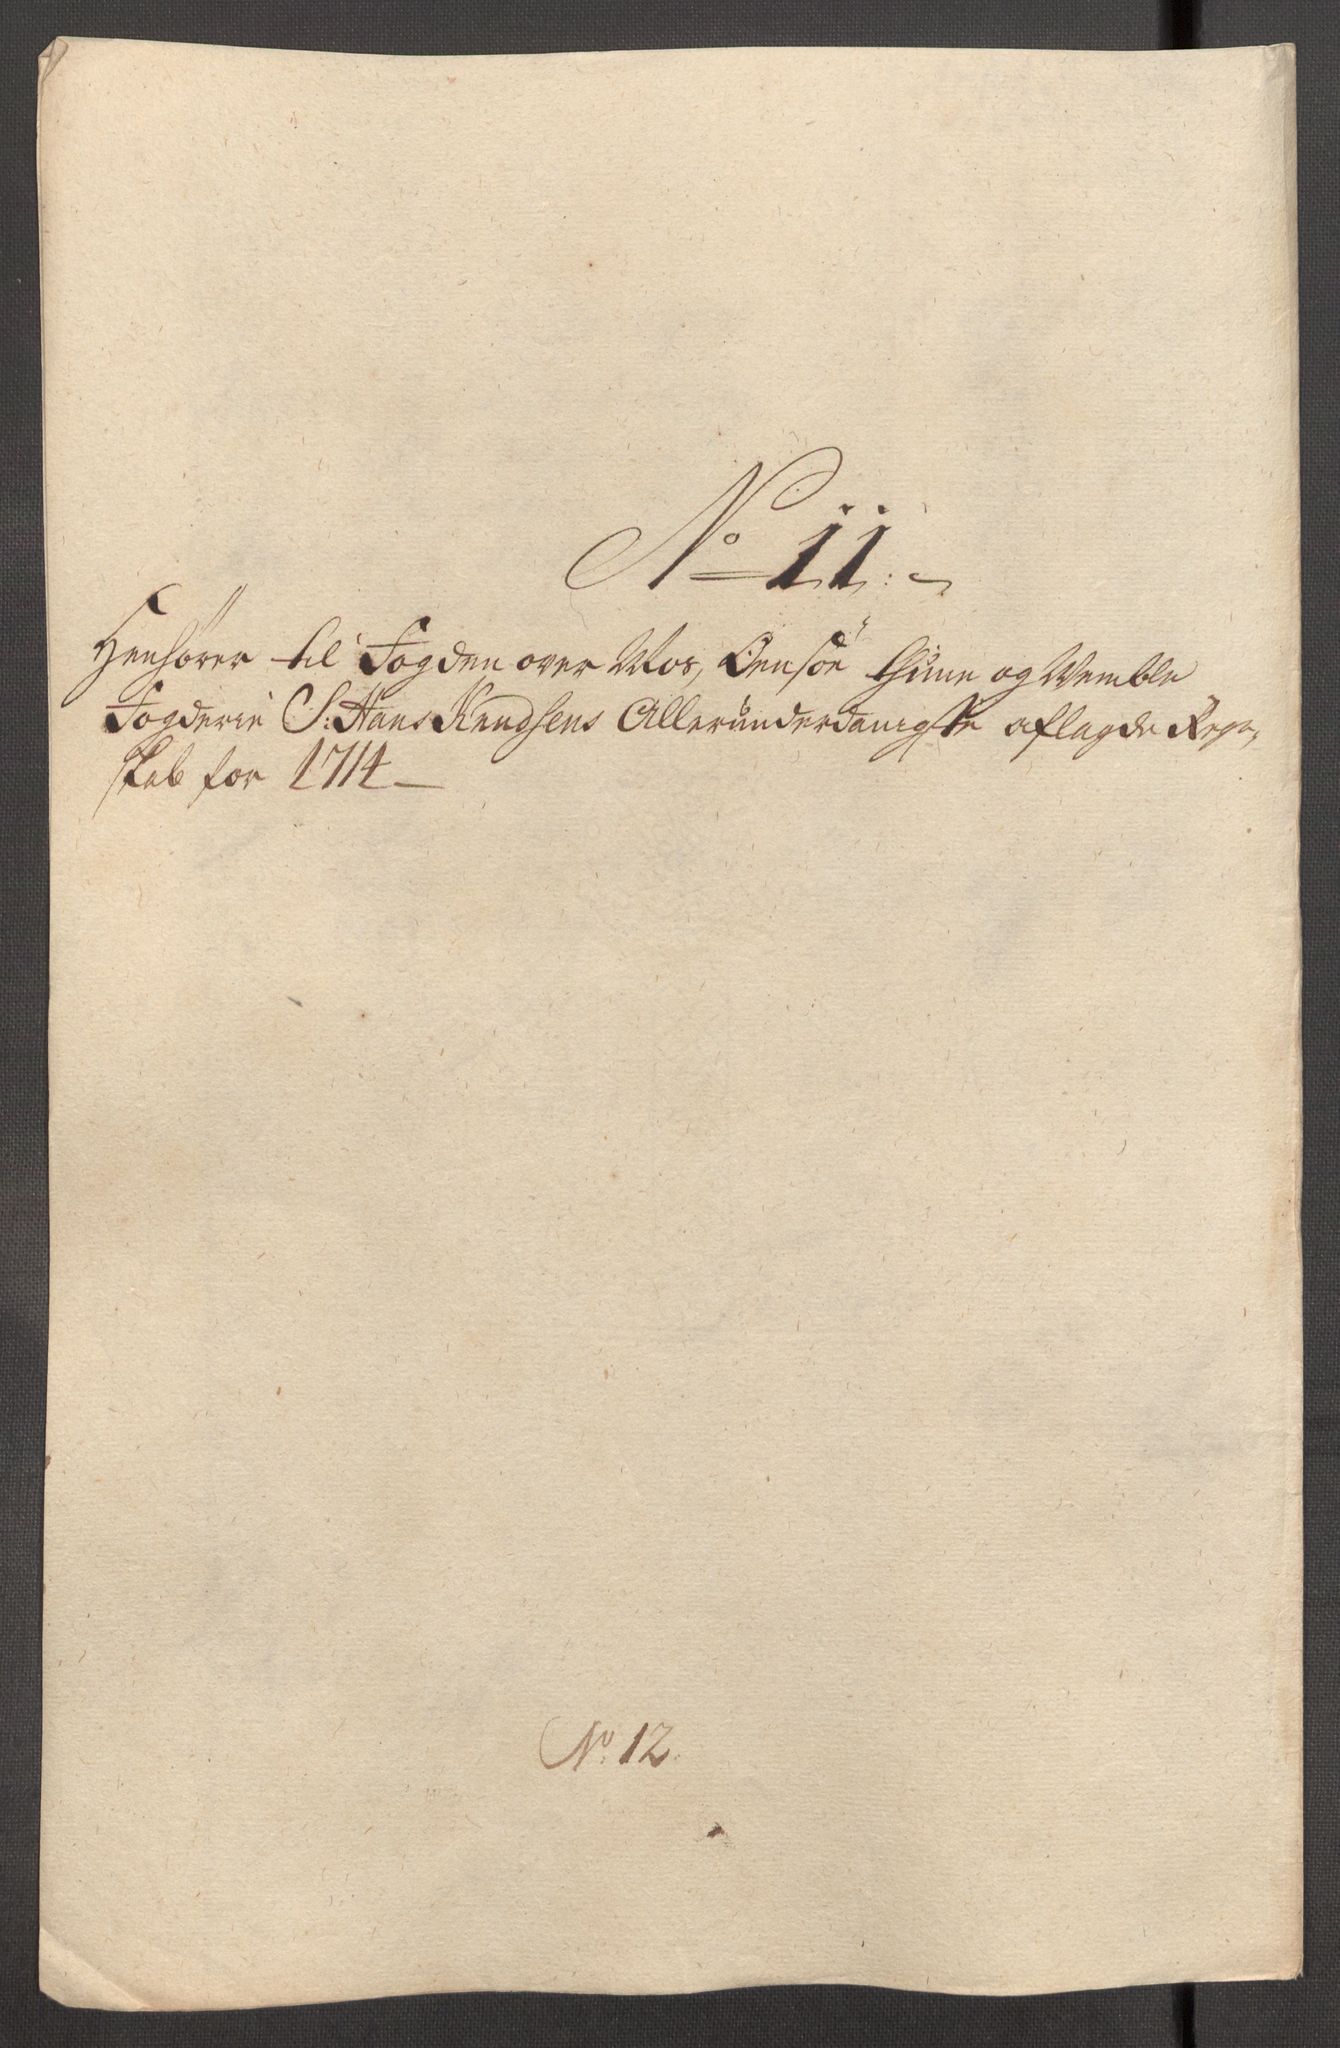 No 11.
Henhörer til Fogden over Mos, Onsöe Thune og Wemble
Fogderie S: Hans Knudsens Alleründerdanigste aflagde Regn,
skab for 1714
No. 12.